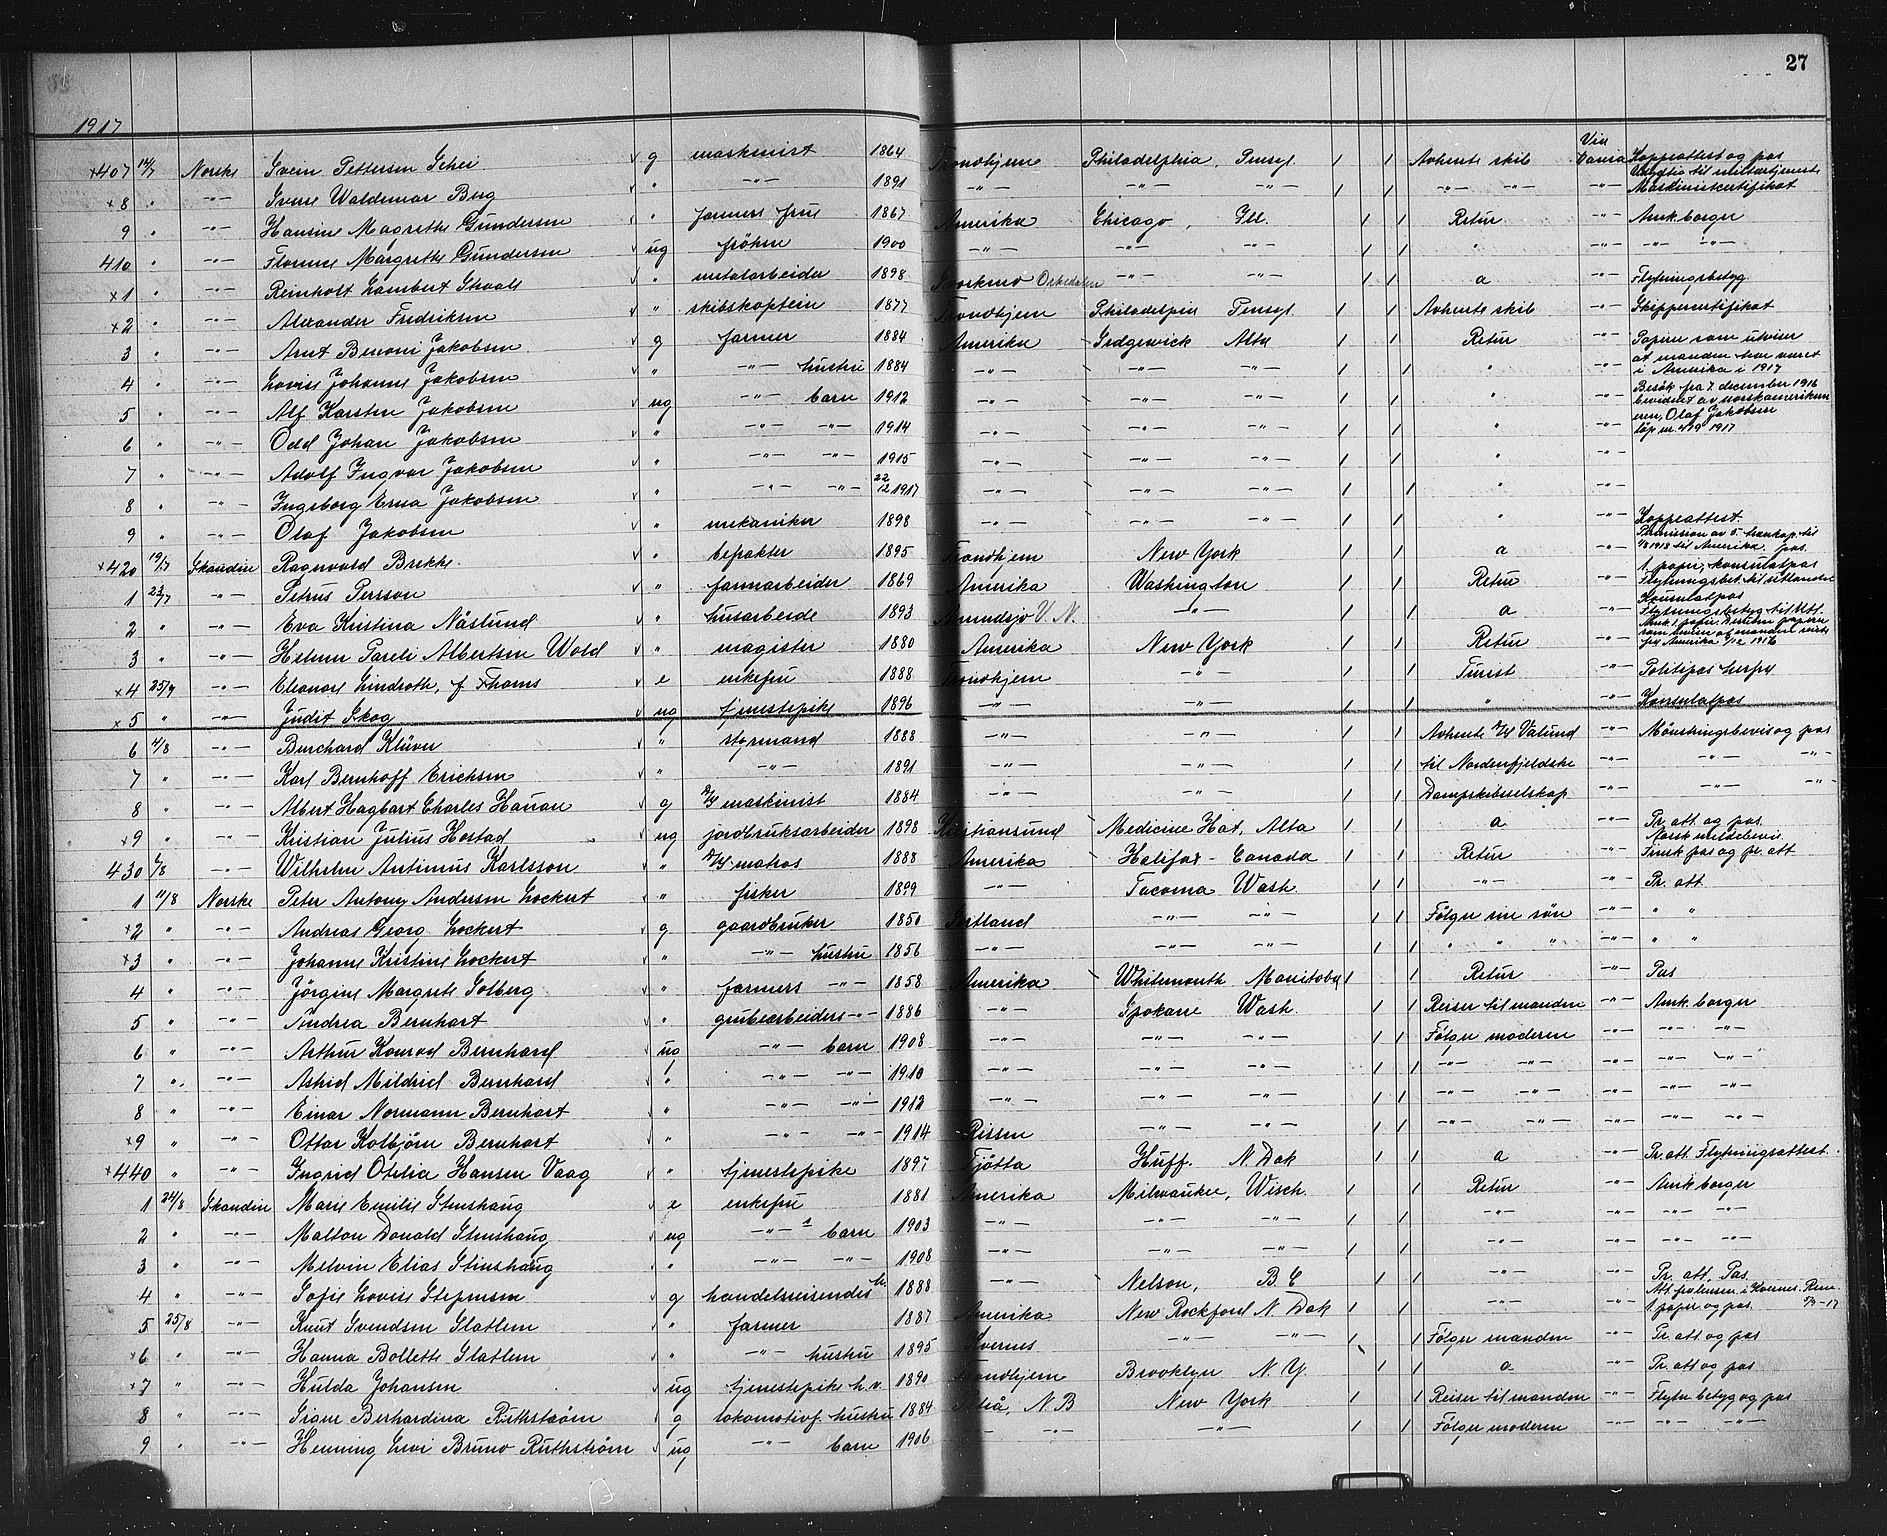 27
1917
Vin
×407 14/7 Norske Svein Pettersen Scher g maskinist 1864 Trondhjem Philadelphia, Pensyl. Avhente skib Koppeattest og pas
×8 " -"- Sverre Waldemar Berg " -"- 1891 -"- -"- -"- -"- -"- Maskinistcertifikat
9 " -"- Hansine Magrethe Gundersen " farmers frue 1867 Amerika Chicago, Ill. Retur -"- Amk. borger
410 " -"- Florence Margrethe Gundersen ug frøken 1900 -"- -"- -"- " -"- -"- -"-
×1 " -"- Reinholt Lambert Skaal " metalarbeider 1898 Orkedalen -"- -"- a -"- Flytningsbetyg
×2 " -"- Alexander Fredriksen " skibskaptein 1877 Trondhjem Philadelpia Pensyl. Avhente skib -"- Skippercertifikat
3 " -"- Arnt Benoni Jakobsen g farmer 1884 Amerika Sedgewick Alta Retur -"- Papirer som utviser
4 " -"- Lovise Johanne Jakobsen " -"- hustru 1884 -"- -"- -"- " -"- at manden har været i Amerika i 1917
5 " -"- Alf Karsten Jakobsen ug -"- barn 1912 -"- -"- -"- " -"- Besøk fra 7 december 1916 bevidnet av norskamerikaneren, Olaf Jakobsen
6 " -"- Odd Johan Jakobsen " -"- -"- 1914 -"- -"- -"- " -"- løp nr 419 1917
7 " -"- Adolf Ingvar Jakobsen " -"- -"- 1915 -"- -"- -"- " -"-
8 " -"- Ingeborg Erna Jakobsen " -"- -"- 22/12 1917 -"- -"- -"- " -"-
9 " -"- Olaf Jakobsen " mekaniker 1898 -"- -"- -"- " -"- Koppeattest.
×420 19/7 Skandin Ragnvald Brekke " befrakter 1895 Trondhjem New York a -"- 1/8 1918 til Amerika. pas.
1 23/7 -"- Petrus Persson " farmarbeider 1869 Amerika Washington Retur -"- 1 papir, konsulatpas
2 " -"- Eva Kristina Näslund " husarbeide 1893 Amundsjö V. N. -"- a -"- Konsulatpas
3 " -"- Helmer Tareli Albertsen Wold " magister 1880 Amerika New York Retur -"- fra Amerika 9/12 1916
×4 25/7 -"- Eleanore Lindroth, f Thams e enkefru 1888 Trondhjem -"- Turist -"- Politipas herfra
×5 " -"- Judit Skog ug tjenestepike 1896 -"- -"- " -"- Konsulatpas
6 4/8 -"- Burchard Klüver " styrmand 1888 -"- -"- Avhente D/S Valund -"- Mønstringsbevis og pas
7 " -"- Karl Bernhoff Erichsen " -"- 1891 -"- -"- til Nordenfjeldske -"- -"- -"-
8 " -"- Albert Hagbart Charles Hanan g maskinist 1884 -"- -"- Dampskibsselskap -"- -"- -"-
×9 " -"- Kristian Julius Hostad ug jordbruksarbeider 1898 Kristiansund Medicine Hat, Alta a -"- Pr. att. og pas.
430 6/8 -"- Wilhelm Antinius Karlsson " matros 1888 Amerika Halifax - Canada Retur -"- Finsk pas og pr. att
1 11/8 Norske Peter Antony Andersen Lockert " fisker 1899 -"- Tacoma Wash -"- -"- Pr. att
×2 " -"- Andreas Georg Lockert g gaardbruker 1850 Sortland -"- -"- Følger sin søn -"- " "
×3 " -"- Johanne Kristine Lockert " -"- hustru 1856 -"- -"- -"- " " " -"- " "
4 " -"- Jörgine Margrete Solberg " farmers -"- 1858 Amerika Whitemouth Manitoba Retur -"- Pas
5 " -"- Andrea Bernhart " grubearbeiders -"- 1886 -"- Spokane Wash Reiser til manden -"- Amk. borger
6 " -"- Arthur Konrad Bernhard ug -"- barn 1908 -"- -"- -"- Følger moderen -"- -"- -"-
7 " -"- Astrid Mildrid Bernhard " -"- -"- 1910 -"- -"- -"- -"- -"- -"- -"- -"-
8 " -"- Einar Normann Bernhart " -"- -"- 1912 -"- -"- -"- -"- -"- -"- -"- -"-
×9 " -"- Ottar Kolbjörn Bernhart " -"- -"- 1914 Rissen -"- -"- -"- -"- -"- -"- -"-
×440 " -"- Ingrid Otelia Hansen Vaag " tjenestepike 1897 Tjötta Huff. N. Dak a -"- Pr. att. Flytningsattest.
1 24/8 Skandin Marie Emilie Stenshaug e enkefru 1881 Amerika Milwaukee, Wisch. Retur -"- Amk borger
2 " -"- Malton Donald Stenshaug ug -"- barn 1903 -"- -"- -"- -"- -"- -"- -"-
3 " -"- Melvin Elias Stenshaug " -"- -"- 1908 -"- -"- -"- -"- -"- -"- -"-
4 " -"- Sofie Lovise Stepensen g handelsreisendes h. 1888 -"- Nelson, B C -"- -"- Pr. att. Pas.
5 25/8 -"- Knut Svendsen Slatlem " farmer 1887 Amerika New Rockford N Dak -"- -"- 1 papir og pas.
×6 " -"- Hanna Bollette Slatlem " -"- hustru 1895 Kvernes -"- -"- Følger manden -"- Pr. att og pas
×7 " -"- Hulda Johansen ug tjenestepike h.v. 1890 Trondhjem Brooklyn N. Y. a -"- Pr. att og pas
8 " -"- Signe Berhardina Ruthström g lokomotivf. hustru 1884 Piteå, N B New York Reiser til manden -"- Flytn betyg og pas
9 " -"- Henning Levi Bruno Ruthström ug -"- barn 1906 -"- -"- Følger moderen -"- -"- -"-